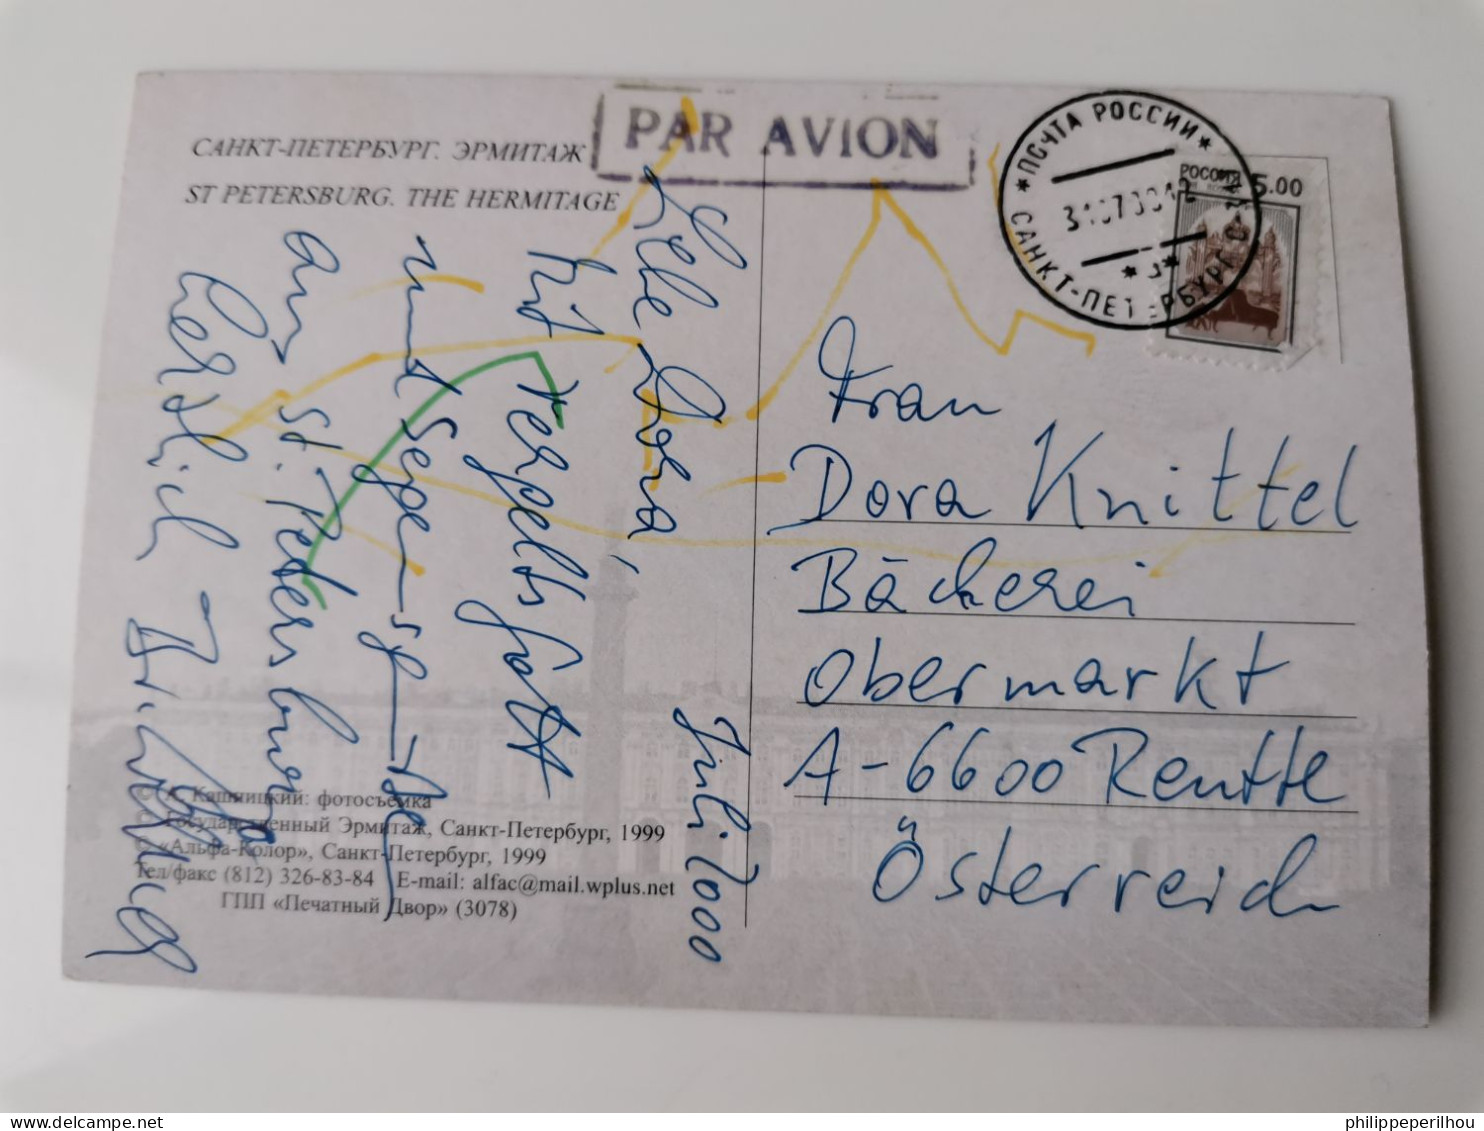 САНКТ-ПЕТЕРБУРГ. ЭРМИТАЖ
ST PETERSBURG. THE HERMITAGE
PAR AVION
*ПОЧТА РОССИИ*
САНКТ-ПЕТЕРБУРГ
РОССИЯ 5.00
Juli 2000
Liebe Dora,
und Segen
aus St. Petersburg
Herzlich
Frau
Dora Knittel
Bäckerei
Obermarkt
A-6600 Reutte
Österreich
© А. Кашницкий: фотосъемка
© Государственный Эрмитаж, Санкт-Петербург, 1999
© «Альфа-Колор», Санкт-Петербург, 1999
Тел/факс (812) 326-83-84 E-mail: alfac@mail.wplus.net
ГПП «Печатный Двор» (3078)
philippeperilhou